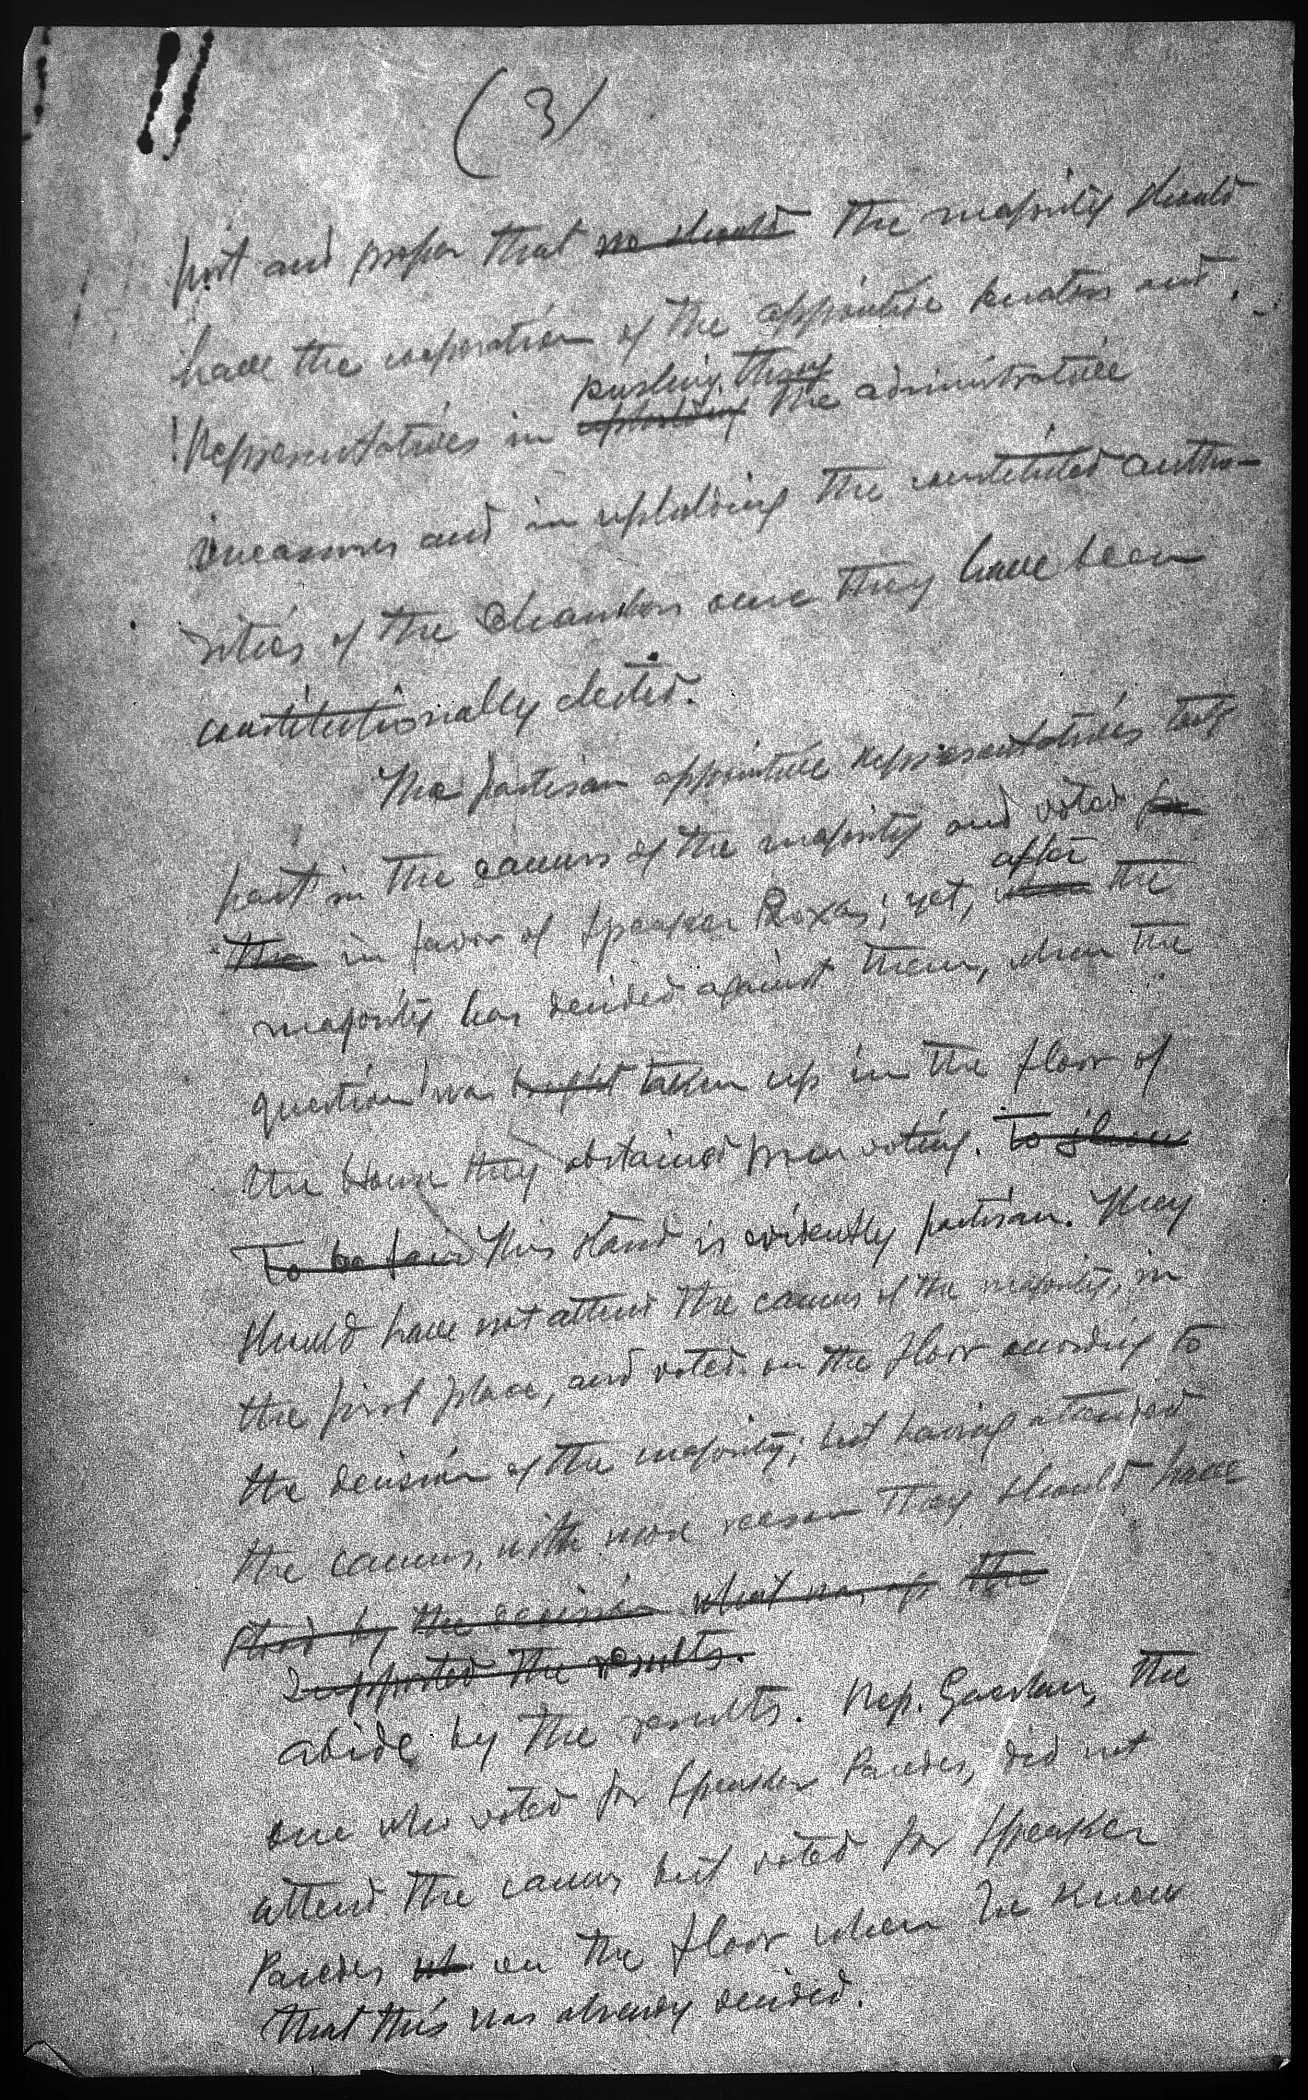 (3)
just and proper that no should the majority should
have the cooperation of the appointive senators and
Representatives in upholding pushing thru the administrative
measures and in upholding the constituted autho-
rities of the Chambers once they have been
constitutionally elected.
The partisan appointive Representatives took
part in the caucus of the majority and voted for
the in favor of Speaker Roxas; yet, when after the
majority has decided against them, when the
question was brought taken up in the floor of
the House they abstained from voting. To show
To be fair This stand is evidently partisan. They
should have not attend the caucus of the majority, in
the first place, and voted on the floor according to
the decision of the majority; but having attended
the caucus, with more reason they should have
stood by the decision what was up the
supported the results.
abide by the results. Rep. the
one who voted for Speaker Paredes, did not
attend the caucus but voted for Speaker
Paredes on the floor when he knew
that this was already decided.